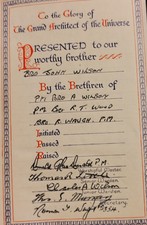 To the Glory of
The Grand Architect of the Universe
PRESENTED to our
worthy brother
BRO JOHN WILSON
By the Brethren of
P.M. BRO A WILSON
P.M. BRO R.T. WOOD
BRO R WAUGH P.M.
Initiated
Passed
Raised
P.M.
Worshipful Master
Thomas
Charles A Wilson
Thos. S.
Secretary